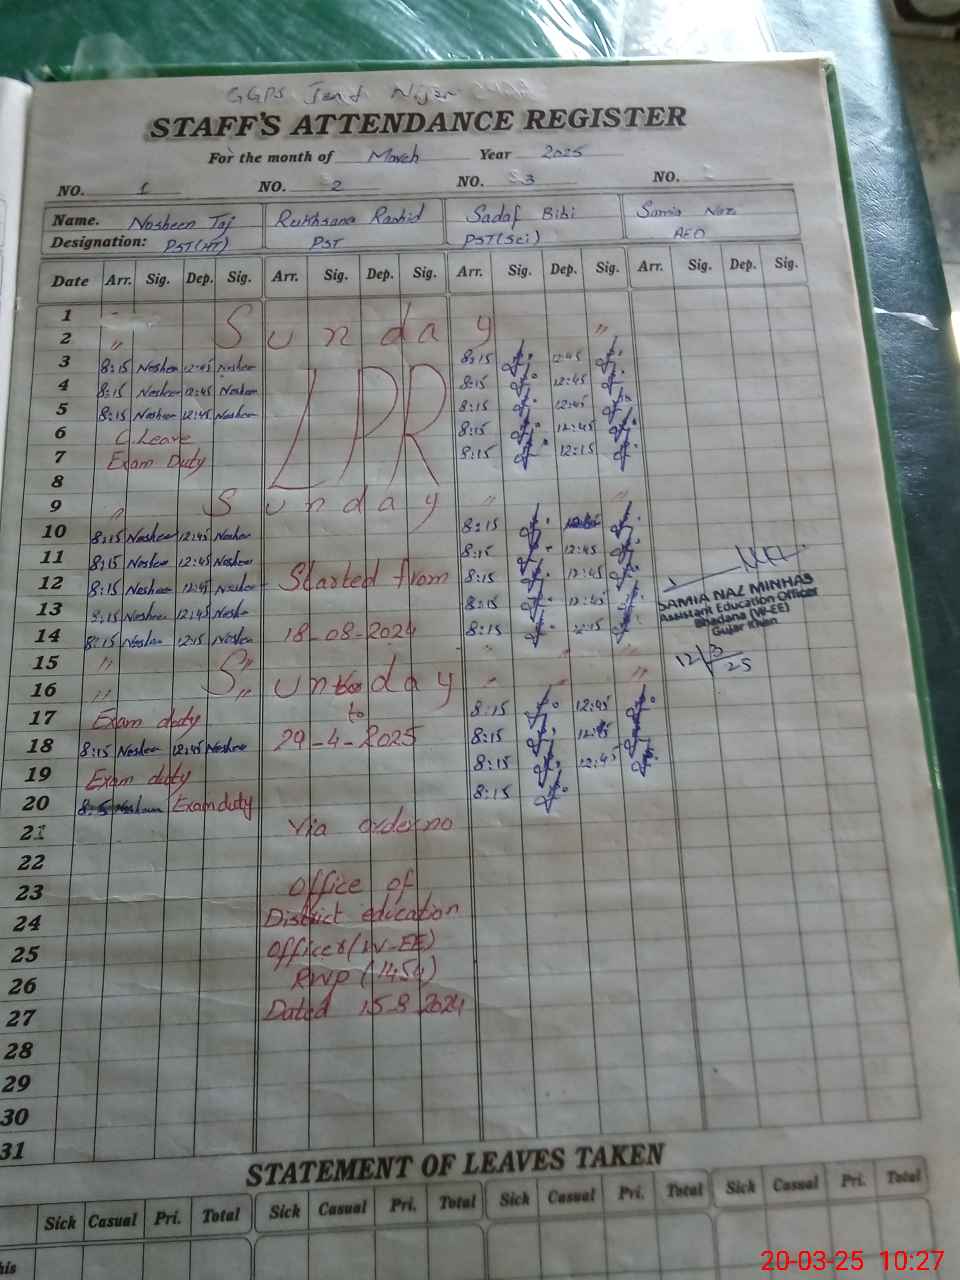 GGPS Jand Nijar
STAFF'S ATTENDANCE REGISTER
For the month of March Year 2025
NO. 1 NO. 2 NO. 3 NO.
Name. Nosheen Taj Rukhsana Rashid Sadaf Bibi Samia Naz
Designation: PST(HT) PST PST(Sci) AEO
Date Arr. Sig. Dep. Sig. Arr. Sig. Dep. Sig. Arr. Sig. Dep. Sig. Arr. Sig. Dep. Sig.
1
2 " Sunday "
3 8:15 Nosheen 12:45 Nosheen 8:15 12:45
4 8:15 Nosheen 12:45 Nosheen LPR 8:15 12:45
5 8:15 Nosheen 12:45 Nosheen 8:15 12:45
6 C.Leave 8:15 12:45
7 Exam Duty 8:15 12:15
8
9 " Sunday " "
10 8:15 Nosheen 12:45 Nosheen 8:15
11 8:15 Nosheen 12:45 Nosheen 8:15 12:45
12 8:15 Nosheen 12:45 Nosheen Started from 8:15 12:45
13 8:15 Nosheen 12:45 Nosheen 8:15 12:45
14 8:15 Nosheen 12:15 Nosheen 18-08-2024 8:15 12:15
SAMIA NAZ MINHAS
Assistant Education Officer
Bhadana (W-EE)
Gujar Khan
12/3/25
15 " " " " "
16 " Sunday " " "
17 Exam duty to 8:15 12:45
18 8:15 Nosheen 12:45 Nosheen 29-4-2025 8:15 12:45
19 Exam duty 8:15 12:45
20 Exam duty 8:15
21 Via order no
22
23 Office of
24 District education
25 Officer(W-EE)
26 RWP (1454)
27 Dated 15-8-2024
28
29
30
31
STATEMENT OF LEAVES TAKEN
Sick Casual Pri. Total Sick Casual Pri. Total Sick Casual Pri. Total Sick Casual Pri. Total
his
20-03-25 10:27